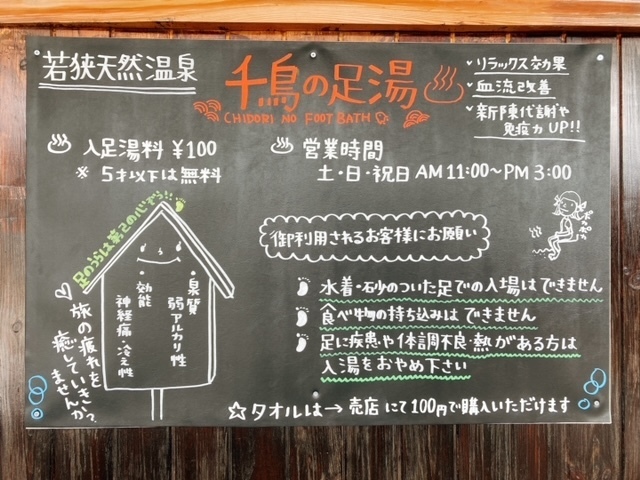 若狭天然温泉
千鳥の足湯
CHIDORI NO FOOT BATH
リラックス効果
血流改善
新陳代謝や
免疫力 UP!!
入足湯料 ¥100
※ 5才以下は無料
営業時間
土・日・祝日 AM 11:00〜PM 3:00
足のうらは第2の心ぞう!!
・泉質
弱アルカリ性
・効能
神経痛・冷え性
♡旅の疲れを
癒していきませんか?
御利用されるお客様にお願い
ポカポカ
水着・砂のついた足での入場はできません
食べ物の持ち込みはできません
足に疾患や体調不良・熱がある方は
入湯をおやめ下さい
☆タオルは→ 売店 にて 100円で購入いただけます